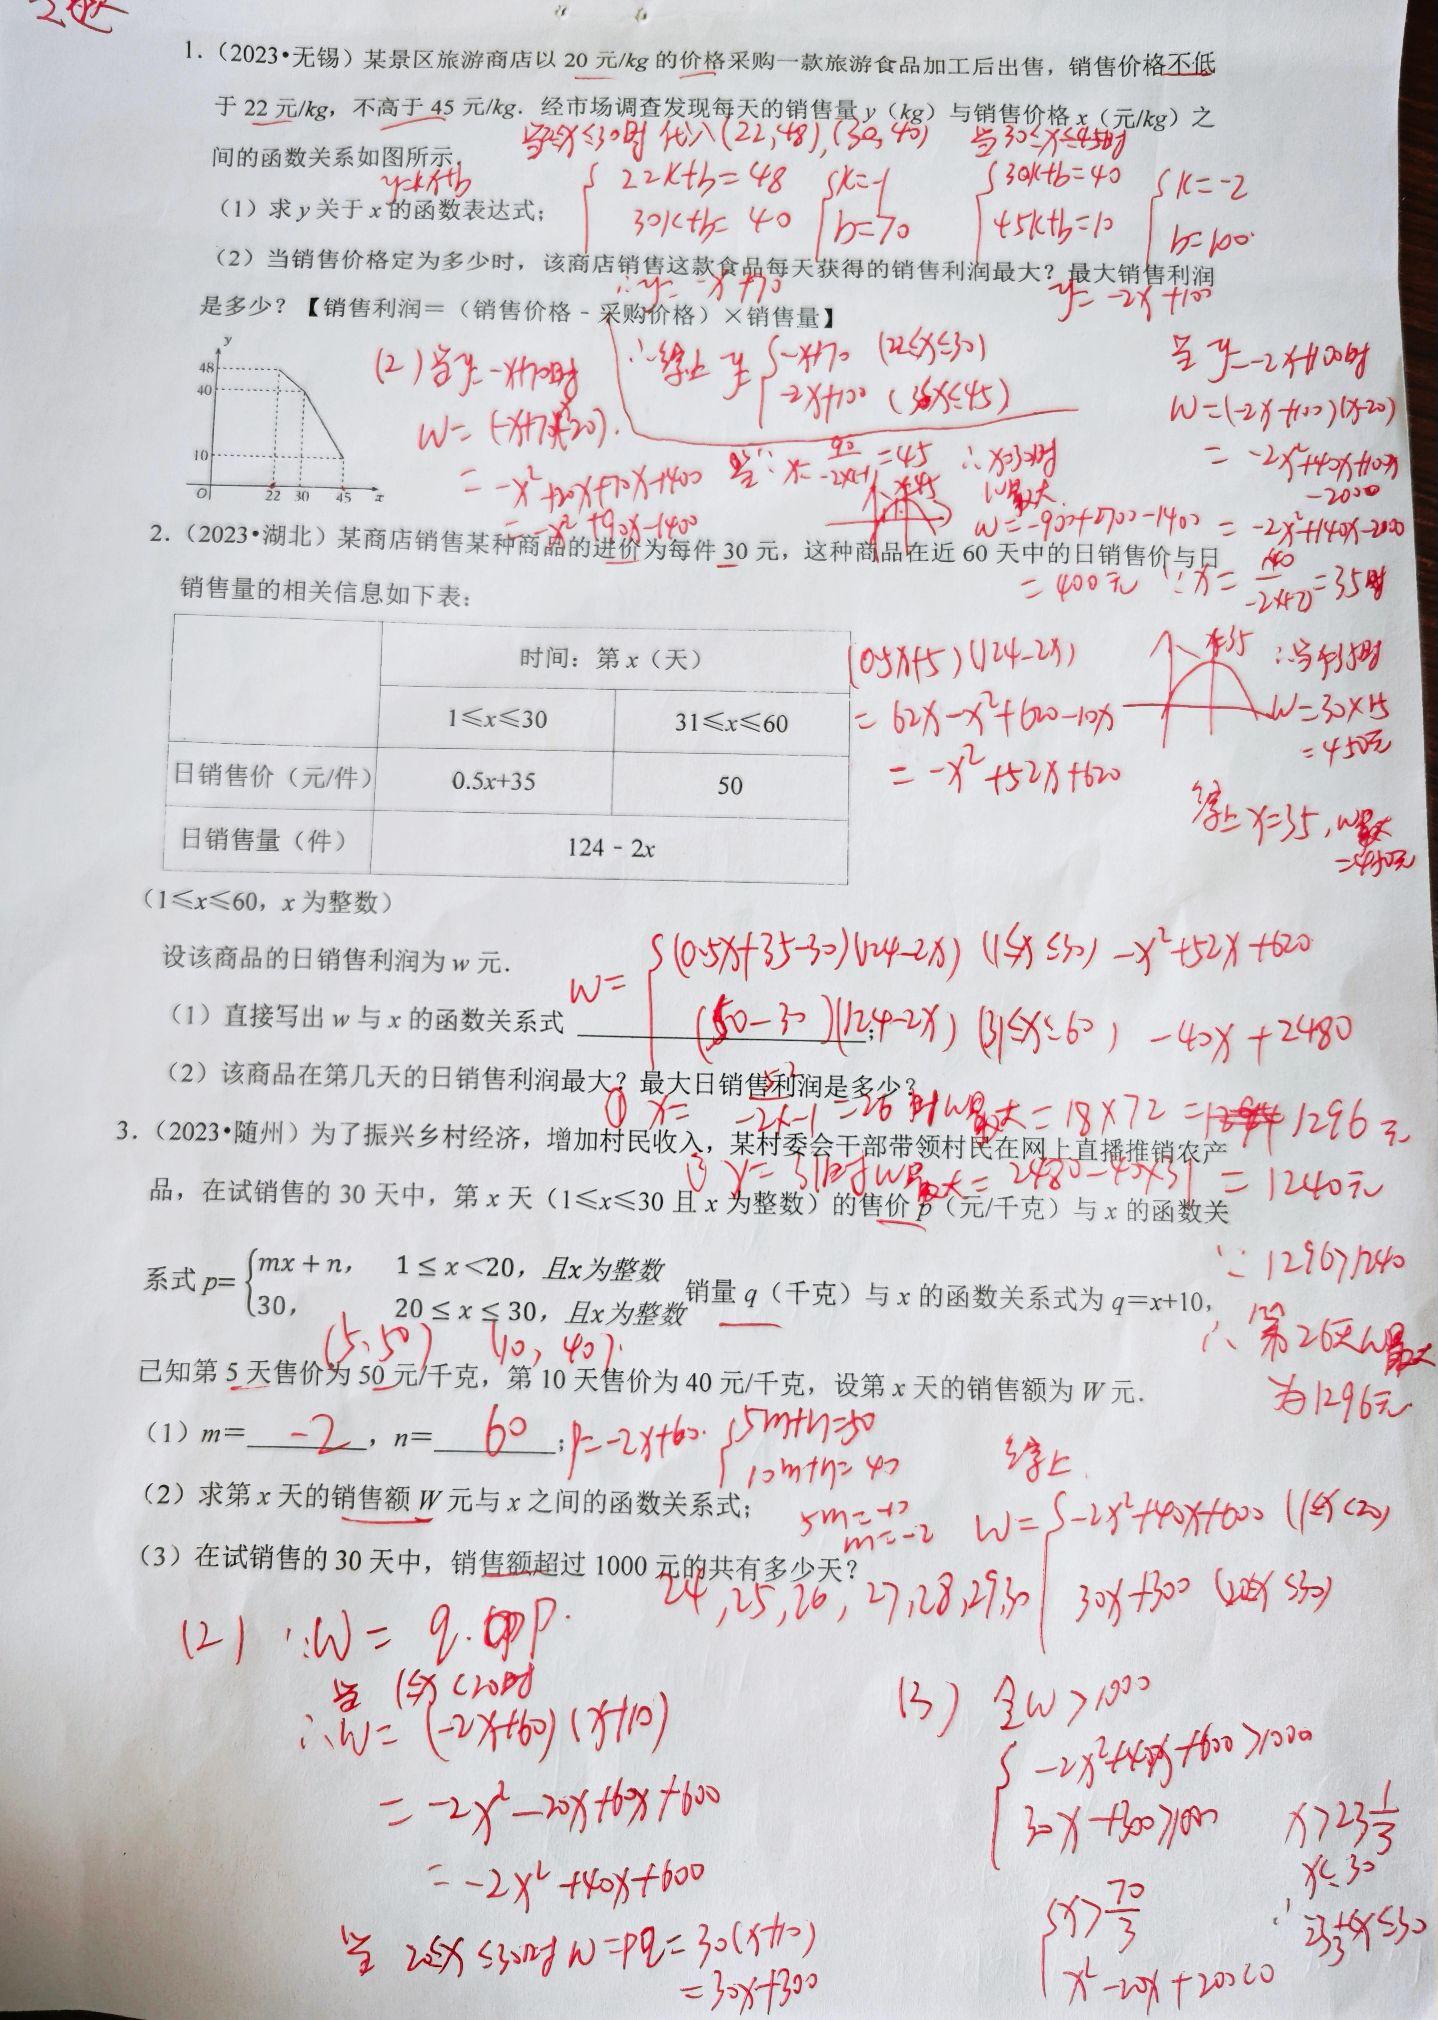 1.（2023•无锡）某景区旅游商店以 20 元/kg 的价格采购一款旅游食品加工后出售，销售价格不低
于 22 元/kg，不高于 45 元/kg．经市场调查发现每天的销售量 y（kg）与销售价格 x（元/kg）之
当22≤x≤30时 代入(22,48),(30,40) 当30≤x≤45时
间的函数关系如图所示．
y=kx+b
{22k+b=48 {k=-1 {30k+b=40 {k=-2
30k+b=40 b=70 45k+b=10 b=100
（1）求 y 关于 x 的函数表达式；
（2）当销售价格定为多少时，该商店销售这款食品每天获得的销售利润最大？最大销售利润
∴y=-x+70 y=-2x+100
是多少？【销售利润＝（销售价格﹣采购价格）×销售量】
y
48
40
10
O 22 30 45 x
(2)当y=-x+70时
∴综上 y={-x+70 (22≤x≤30)
-2x+100 (30≤x≤45)
W=(-x+70)(x-20).
=-x²+20x+70x-1400
=-x²+90x-1400
x=90/-2×-1=45 ∴x=30时
x=45
W最大
W=-900+2700-1400
=400元
当y=-2x+100时
W=(-2x+100)(x-20)
=-2x²+40x+100x
-2000
=-2x²+140x-2000
∵x=140/-2×(-2)=35时
x=35
∴当x=35时
W=30×15
=450元
综上x=35,W最大
=450元
2.（2023•湖北）某商店销售某种商品的进价为每件 30 元，这种商品在近 60 天中的日销售价与日
销售量的相关信息如下表：
时间：第 x（天）
1≤x≤30 31≤x≤60
日销售价（元/件） 0.5x+35 50
日销售量（件） 124﹣2x
(0.5x+5)(124-2x)
=62x-x²+620-10x
=-x²+52x+620
（1≤x≤60，x 为整数）
设该商品的日销售利润为 w 元．
W={(0.5x+35-30)(124-2x) (1≤x≤30) -x²+52x+620
(50-30)(124-2x) (31≤x≤60) -40x+2480
（1）直接写出 w 与 x 的函数关系式 ；
（2）该商品在第几天的日销售利润最大？最大日销售利润是多少？
① x=52/-2×-1=26时W最大=18×72= 1296元
x=31时W最大=2480-40×31=1240元
∵1296>1240
∴第26天W最大
为1296元
3.（2023•随州）为了振兴乡村经济，增加村民收入，某村委会干部带领村民在网上直播推销农产
品，在试销售的 30 天中，第 x 天（1≤x≤30 且 x 为整数）的售价 p（元/千克）与 x 的函数关
系式 p={mx+n， 1≤x<20，且x为整数
30， 20≤x≤30，且x为整数 销量 q（千克）与 x 的函数关系式为 q＝x+10，
(5,50) (10,40).
已知第 5 天售价为 50 元/千克，第 10 天售价为 40 元/千克，设第 x 天的销售额为 W 元．
（1）m＝ -2 ，n＝ 60 ；p=-2x+60. {5m+n=50
10m+n=40
5m=-10
m=-2
（2）求第 x 天的销售额 W 元与 x 之间的函数关系式；
（3）在试销售的 30 天中，销售额超过 1000 元的共有多少天？
24,25,26,27,28,29,30
综上
W={-2x²+40x+600 (1≤x<20)
30x+300 (20≤x≤30)
(2) ∵W=q.p.
当1≤x<20时
∴W=(-2x+60)(x+10)
=-2x²-20x+60x+600
=-2x²+40x+600
当20≤x≤30时W=pq=30(x+10)
=30x+300
(3)令W>1000
{-2x²+40x+600>1000
30x+300>1000
x>23 1/3
x≤30
{x>70/3
x²-20x+200<0
∴23 1/3<x≤30